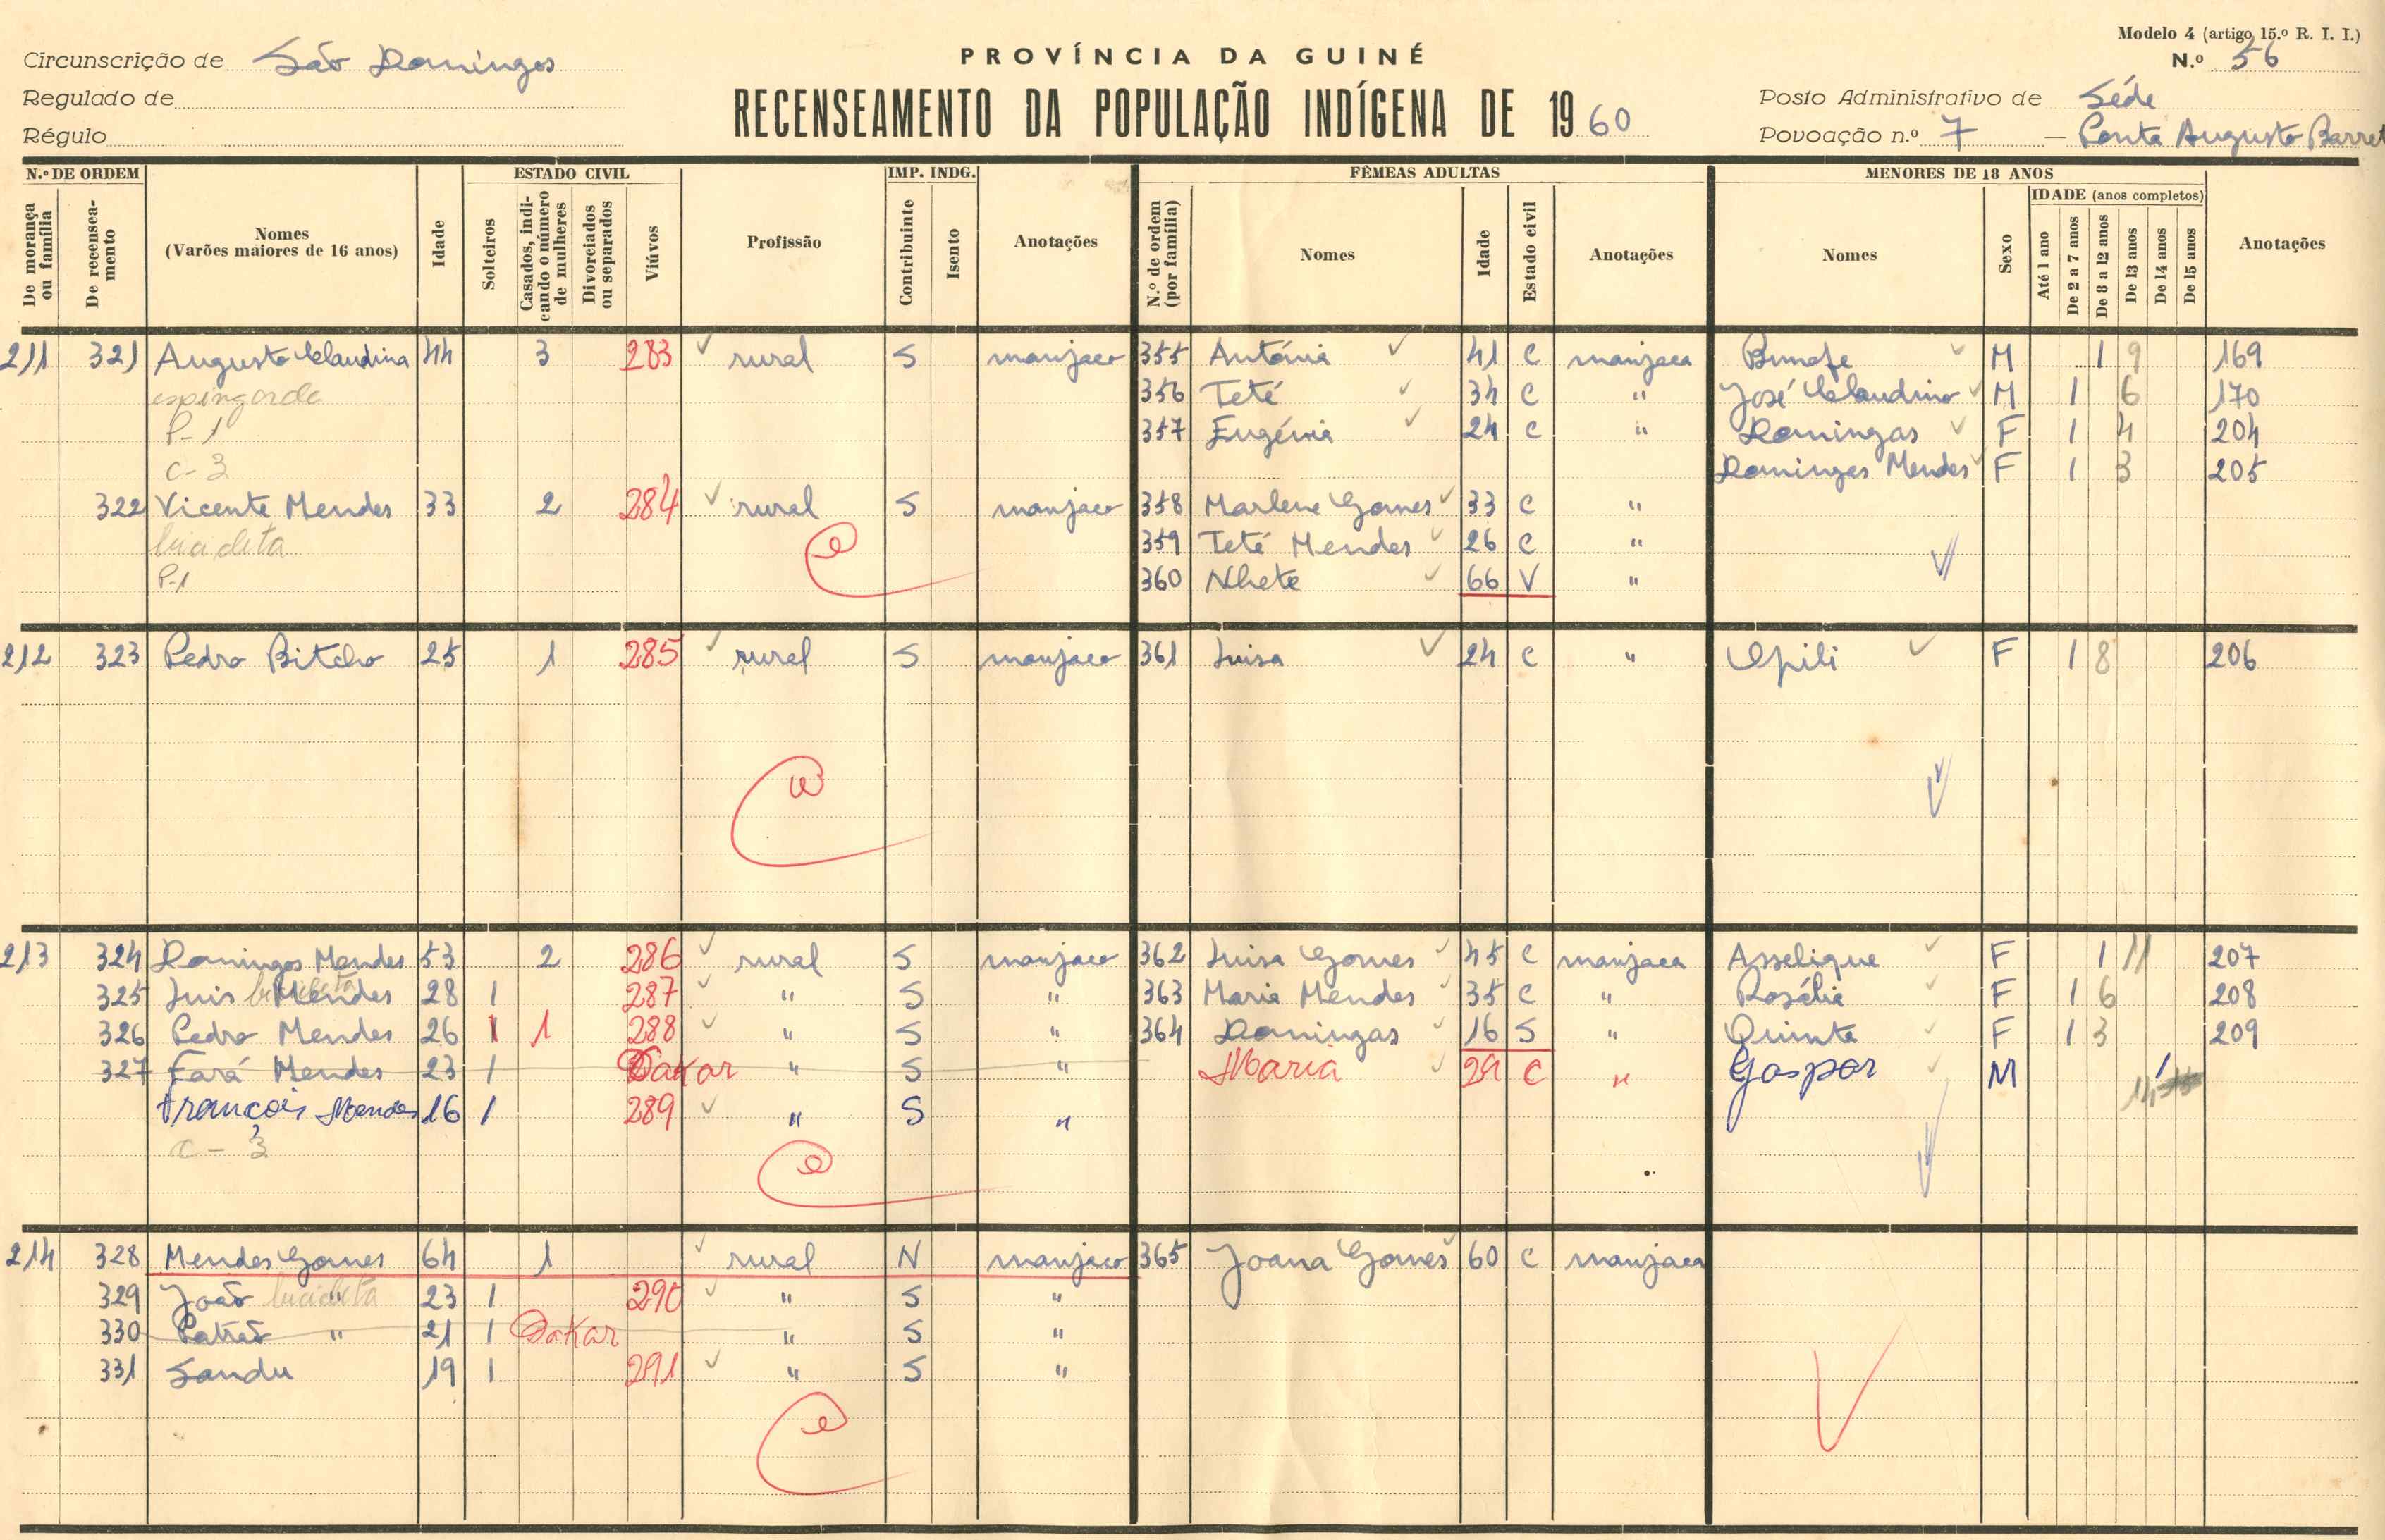 Modelo 4 (artigo 15.º R. I. I.)
Circunscrição de São Domingos
PROVÍNCIA DA GUINÉ
N.º 56
Regulado de
RECENSEAMENTO DA POPULAÇÃO INDÍGENA DE 1960
Posto Administrativo de Séde
Régulo
Povoação n.º 7 — Ponta Augusto Barret
N.º DE ORDEM ESTADO CIVIL IMP. INDG. FÊMEAS ADULTAS MENORES DE 18 ANOS
De morança ou família
De recensea-mento
Nomes
(Varões maiores de 16 anos)
Idade
Solteiros
Casados, indi-cando o número de mulheres
Divorciados ou separados
Viúvos
Profissão
Contribuinte
Isento
Anotações
N.º de ordem (por família)
Nomes
Idade
Estado civil
Anotações
Nomes
Sexo
IDADE (anos completos)
Até 1 ano
De 2 a 7 anos
De 8 a 12 anos
De 13 anos
De 14 anos
De 15 anos
Anotações
211 321 Augusto Claudina 44 3 283 rural S manjaco 355 Antónia 41 C manjaca Bunafe M 1 9 169
espingarda 356 Teté 34 C " José Claudino M 1 6 170
P-1 357 Eugénia 24 C " Domingas F 1 4 204
C-3 Domingas Mendes F 1 3 205
322 Vicente Mendes 33 2 284 rural S manjaco 358 Marlene Gomes 33 C "
bicicleta 359 Teté Mendes 26 C "
P-1 360 Nhete 66 V "
212 323 Pedro Bitcho 25 1 285 rural S manjaco 361 Luisa 24 C " Opili F 1 8 206
213 324 Domingos Mendes 53 2 286 rural S manjaco 362 Luisa Gomes 45 C manjaca Asselique F 1 11 207
325 Luis Mendes bicicleta 28 1 287 " S " 363 Maria Mendes 35 C " Rosália F 1 6 208
326 Pedro Mendes 26 1 1 288 " S " 364 Domingas 16 S " Quinta F 1 3 209
327 Fará Mendes 23 1 Dakar " S " Maria 29 C " Gaspar M 1
François Mendes 16 1 289 " S " 14
C-3
214 328 Mendes Gomes 64 1 rural N manjaco 365 Joana Gomes 60 C manjaca
329 João " bicicleta 23 1 290 " S "
330 " 21 1 Dakar " S "
331 Sandu 19 1 291 " S "